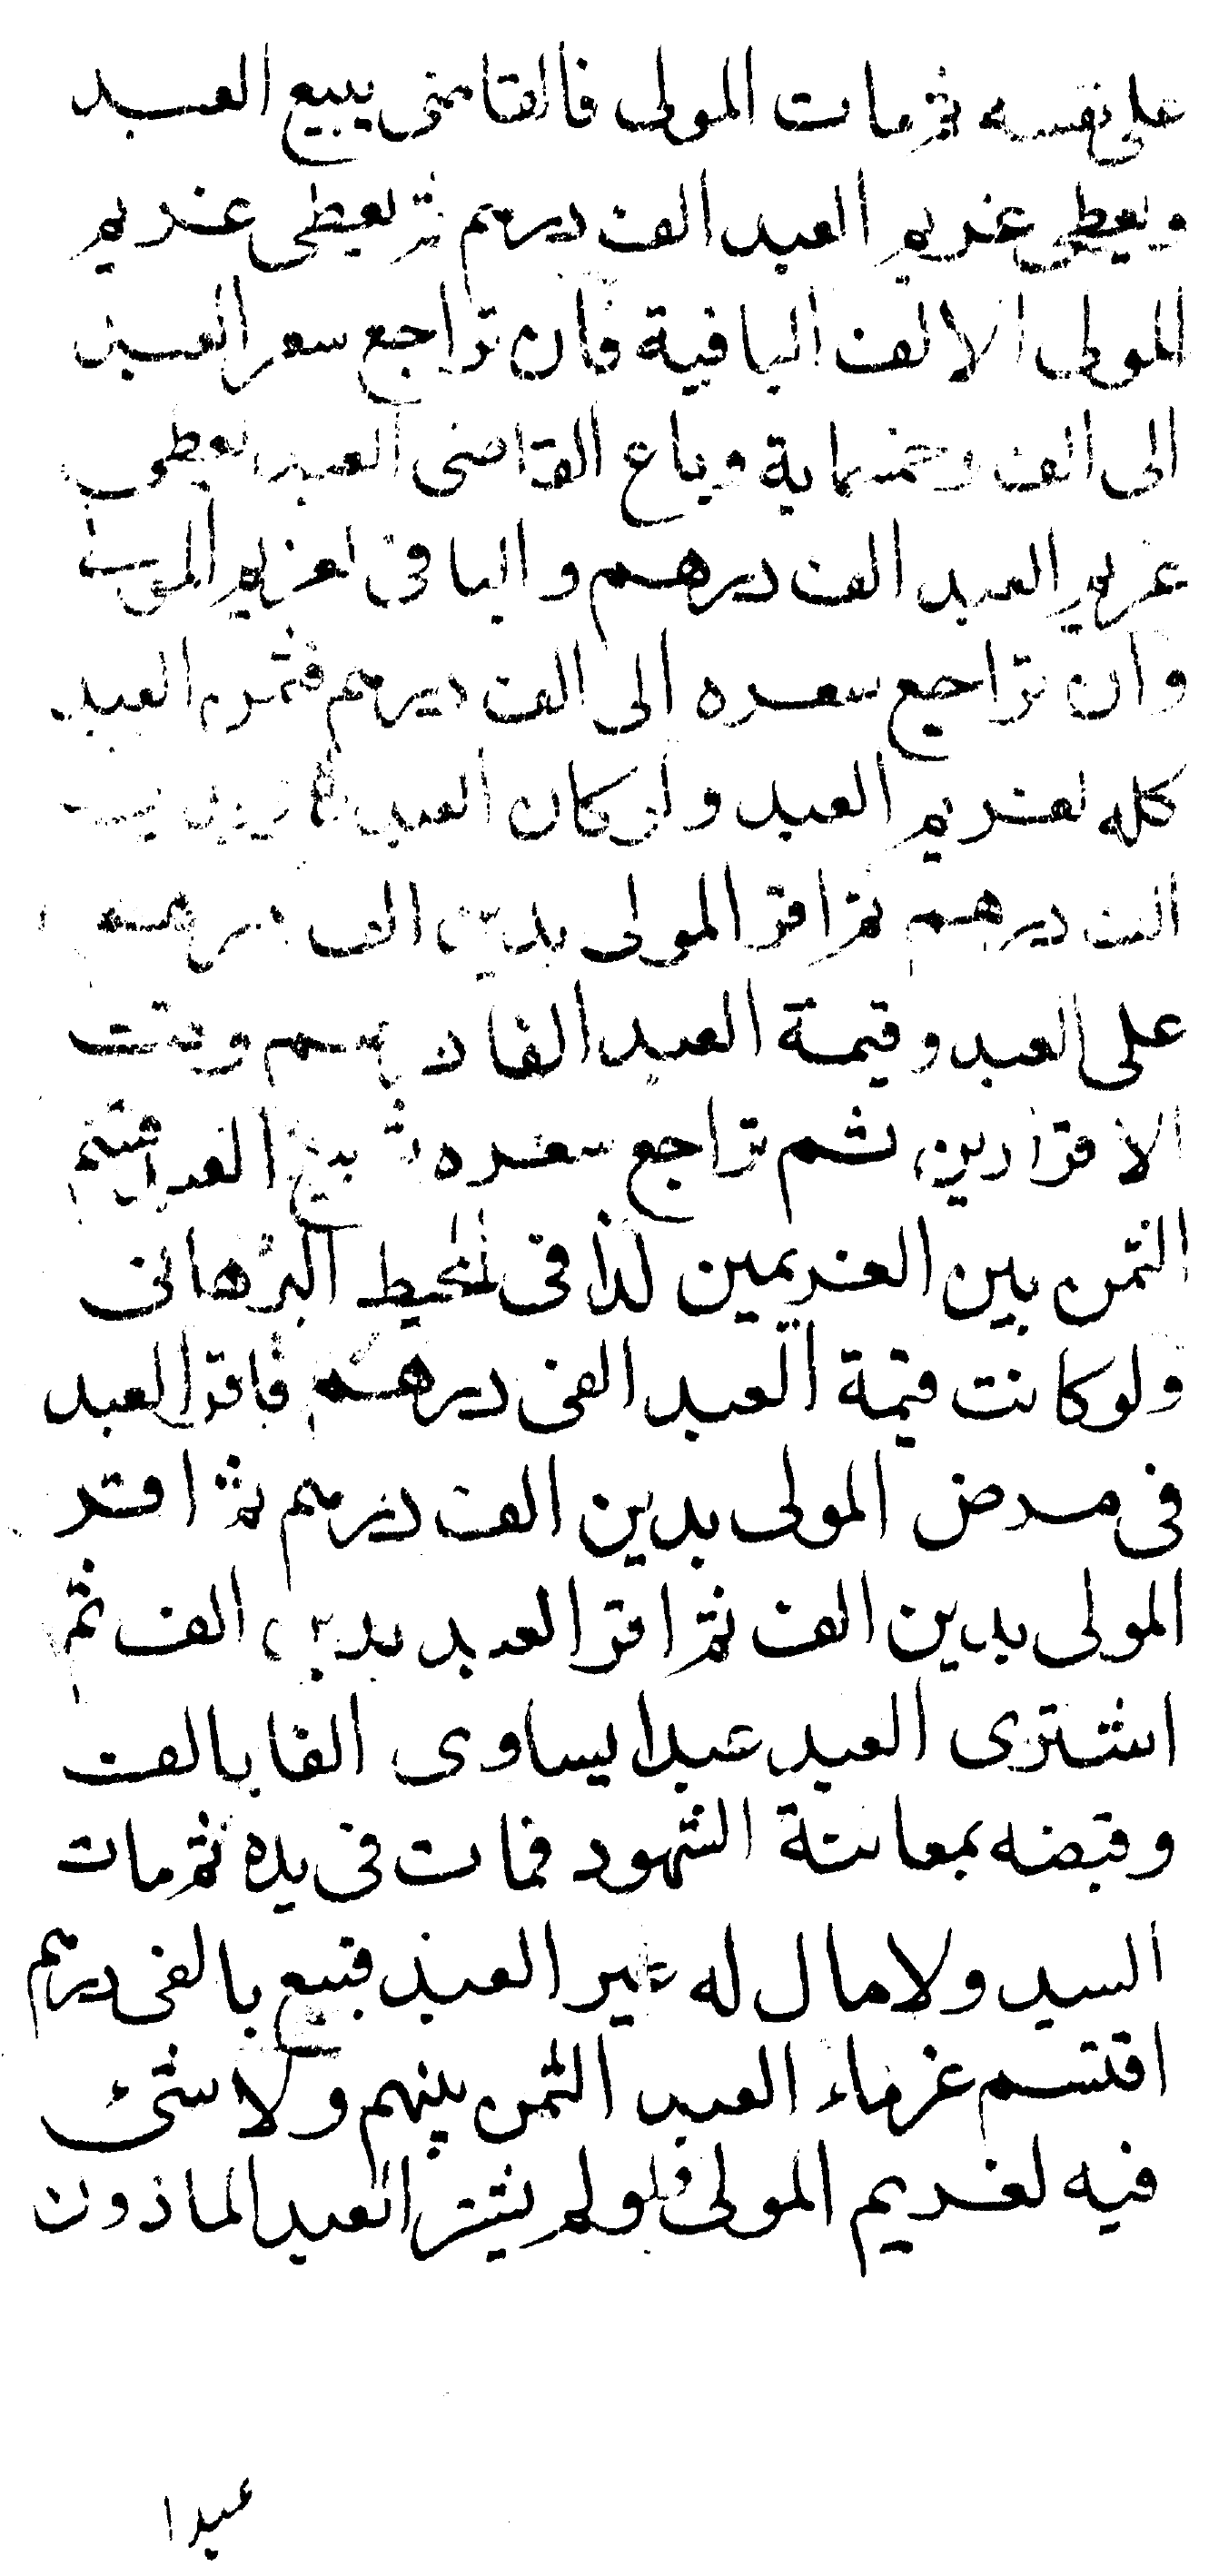 على نفسه ثم مات المولى فالقاضى يبيع العبد
ويعطى غريم العبد الف درهم ثم يعطى غريم
المولى الالف الباقية وان تراجع سعر العبد
الى الف وخمسماية وباع القاضى العبد يعطى
غريم العبد الف درهم والباقى لغريم المولى
وان تراجع سعره الى الف درهم فثمن العبد
كله لغريم العبد ولو كان العبد
الف درهم ثم اقر المولى بدين الف درهم
على العبد وقيمة العبد الفا درهم وقت
الاقرارين ثم تراجع سعره ثم بيع العبد قسم
الثمن بين الغريمين كذا فى المحيط البرهانى
ولو كانت قيمة العبد الفى درهم فاقر العبد
فى مرض المولى بدين الف درهم ثم اقر
المولى بدين الف ثم اقر العبد بدين الف ثم
اشترى العبد عبدا يساوى الفا بالف
وقبضه بمعاينة الشهود فمات فى يده ثم مات
السيد ولا مال له غير العبد فبيع بالفى درهم
اقتسم غرماء العبد الثمن بينهم ولا شئ
فيه لغريم المولى فلو لم يشتر العبد الماذون
عبدا